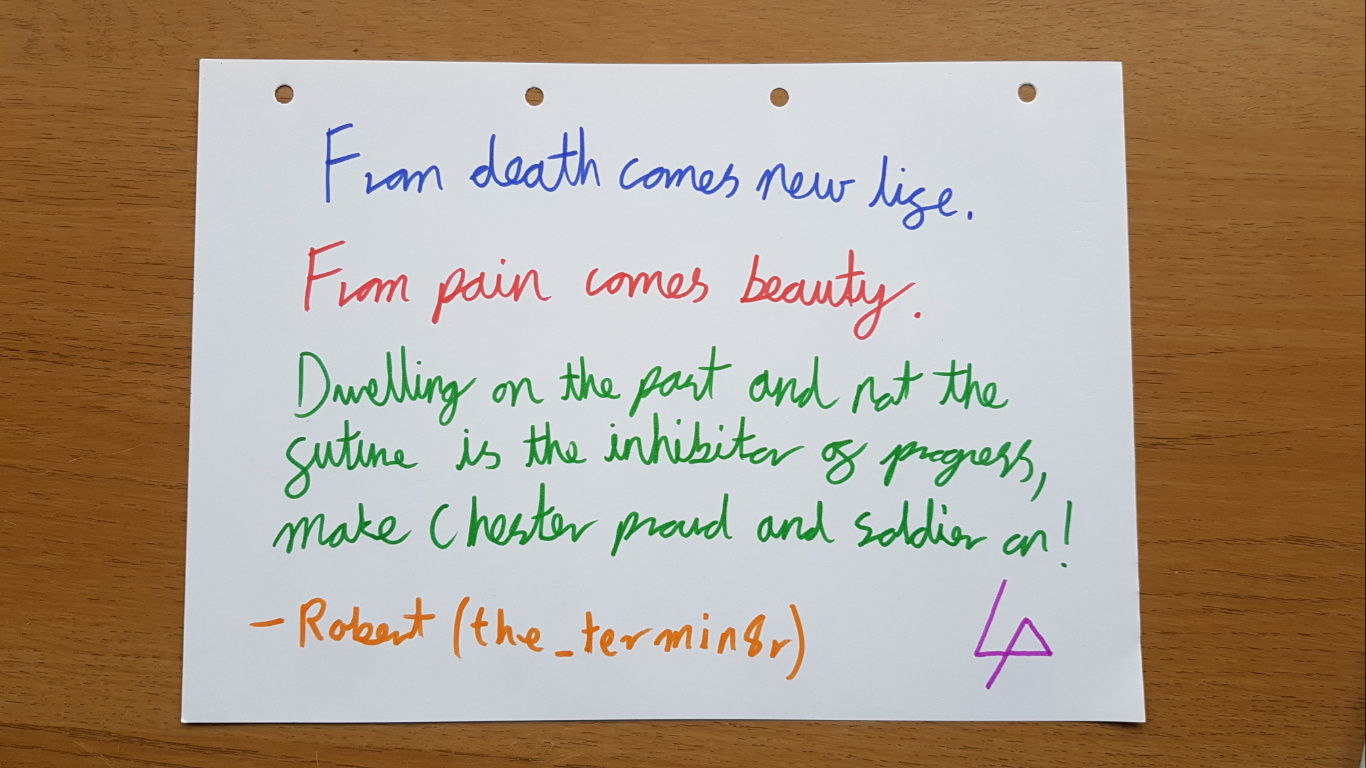 From death comes new life.
From pain comes beauty.
Dwelling on the past and not the
future is the inhibitor of progress,
make Chester proud and soldier on!
- Robert (the_termin8r)
LP